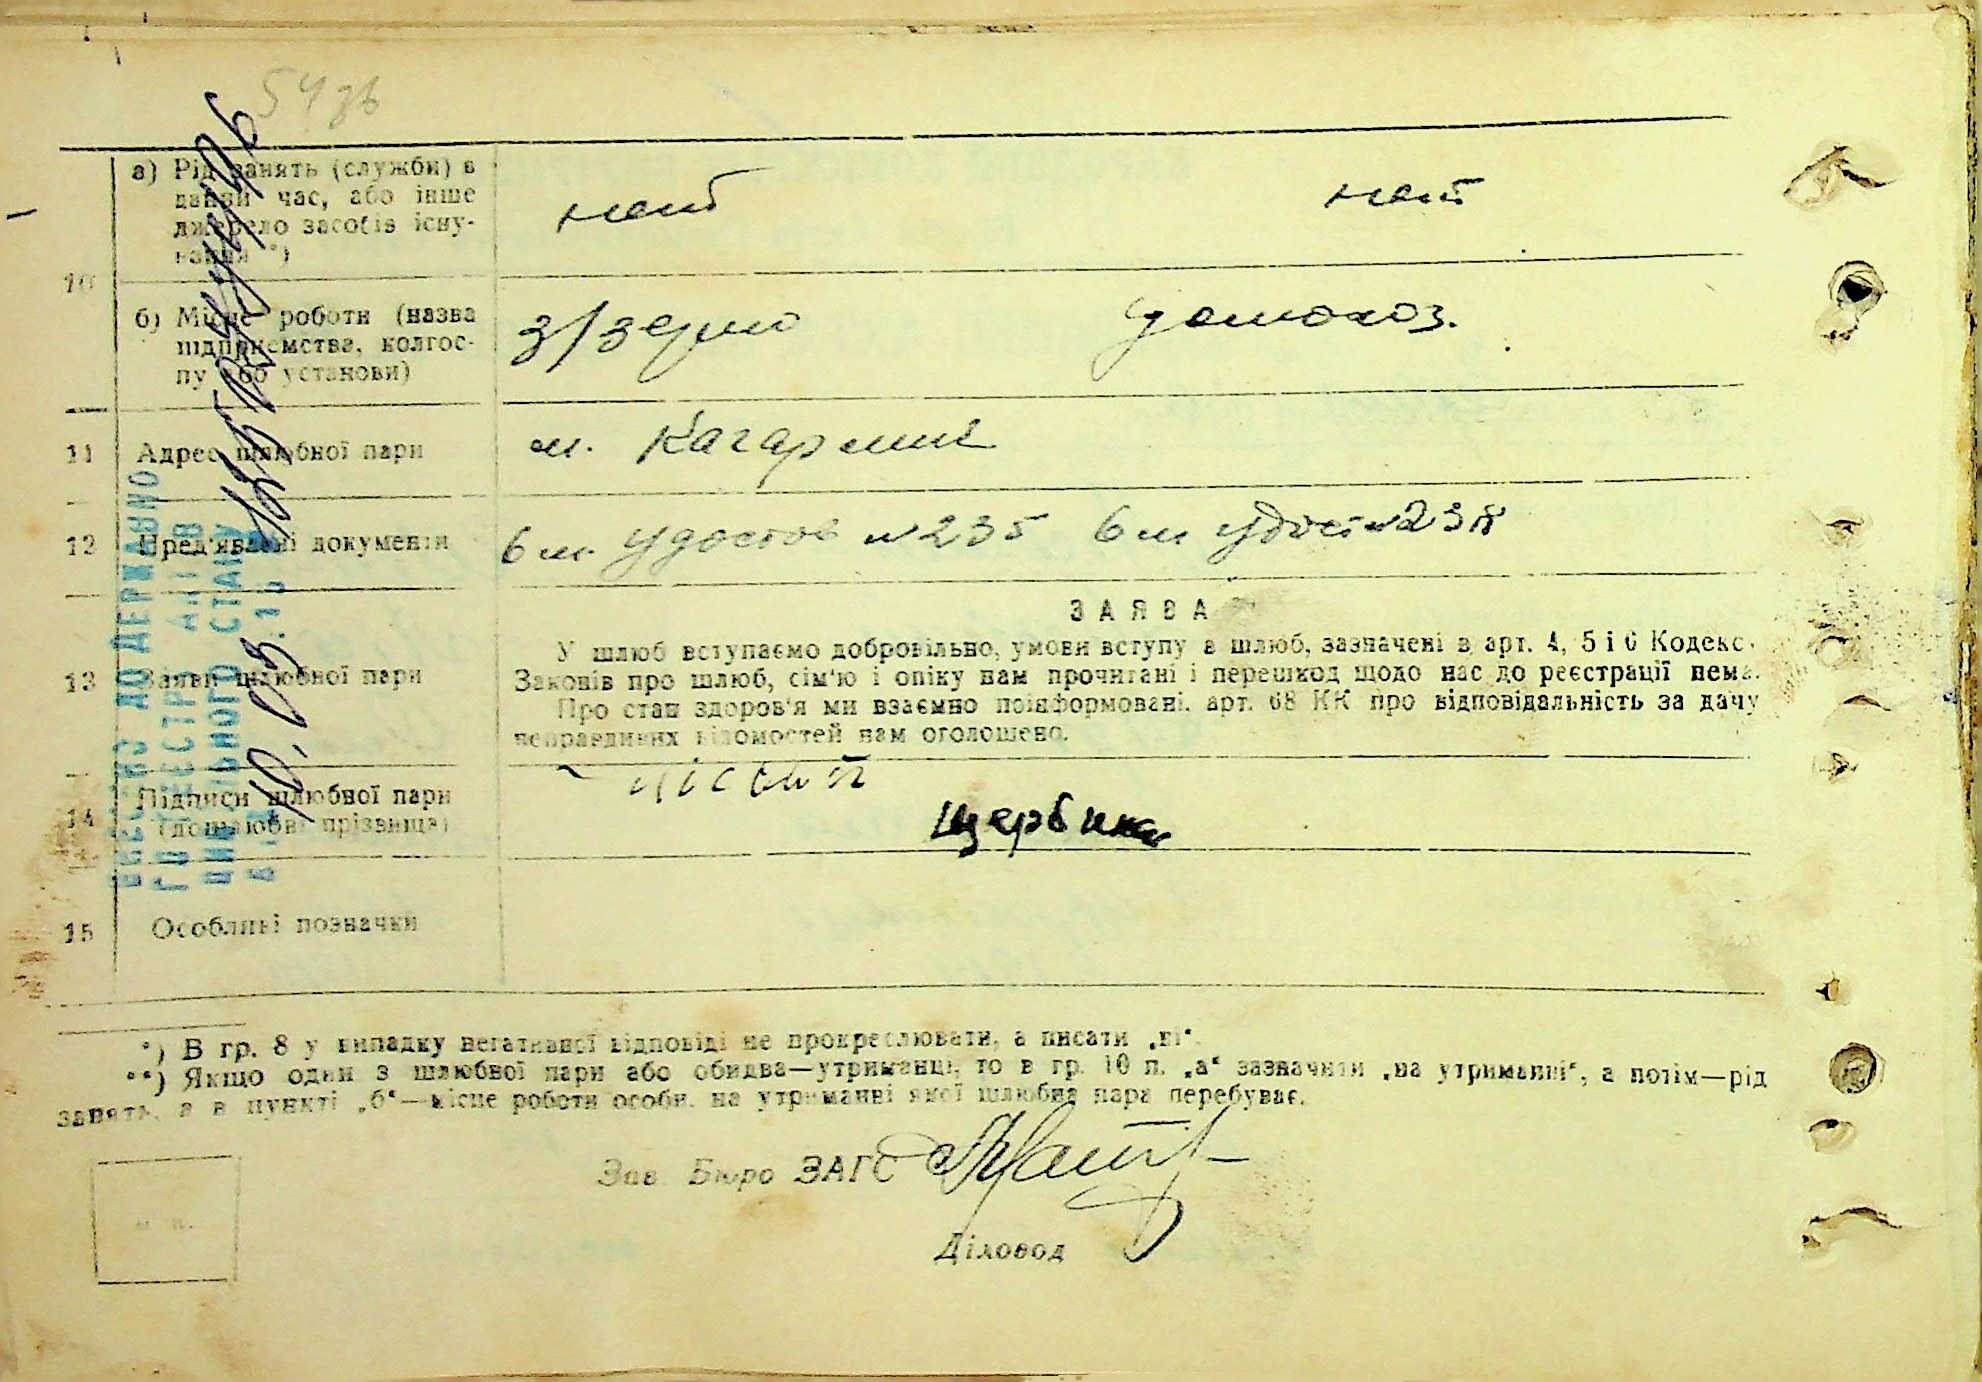 54 зв
10
а) Рід занять (служби) в
даний час, або інше
джерело засобів існу-
вання **)
б) Місце роботи (назва
підприємства, колгос-
пу або установи)
З/зерно
домохоз.
11 Адрес шлюбної пари
м. Кагарлик
12 Пред'явлені документи
удостов №235
13 Заяви шлюбної пари
ЗАЯВА
У шлюб вступаємо добровільно, умови вступу в шлюб, зазначені в арт. 4, 5 і 6 Кодекс.
Законів про шлюб, сім'ю і опіку нам прочитані і перешкод щодо нас до реєстрації нема.
Про стан здоров'я ми взаємно поінформовані. арт. 68 КК про відповідальність за дачу
неправдивих відомостей нам оголошено.
14 Підписи шлюбної пари
(дошлюбні прізвища)
Щербина
15 Особливі позначки
*) В гр. 8 у випадку негативної відповіді не прокреслювати, а писати „ні“.
**) Якщо один з шлюбної пари або обидва—утриманці, то в гр. 10 п. „а“ зазначити „на утриманні“, а потім—рід
занять, а в пункті „б“—місце роботи особи, на утриманні якої шлюбна пара перебуває.
Зав. Бюро ЗАГС
Діловод
м. п.
ВНЕСЕНО ДО ДЕРЖАВНО
ГО РЕЄСТРУ АКТІВ
ЦИВІЛЬНОГО СТАНУ